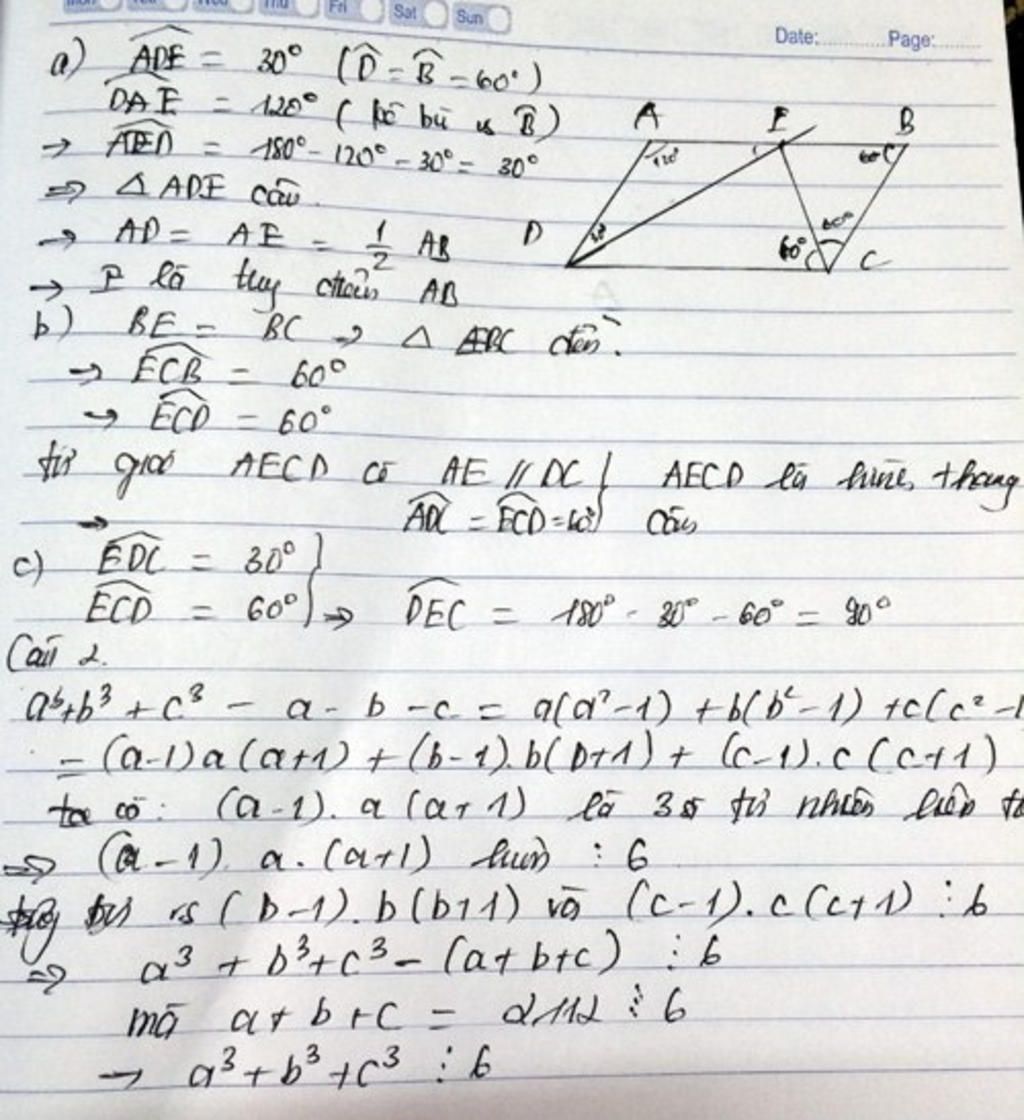 Mon Tue Wed Thu Fri Sat Sun
Date: Page:
a) ADE = 30° (D = B = 60°)
DAE = 120° (kề bù vs B)
→ AED = 180° - 120° - 30° = 30°
⇒ △ ADE cân
→ AD = AE = 1/2 AB
→ E là trung điểm AB
A E B
120° 60°
D 30° 60° 60° C
b) BE = BC → △ EBC đều.
→ ECB = 60°
→ ECD = 60°
tứ giác AECD có AE // DC } AECD là hình thang
→ ADC = ECD = 60° cân
c) EDC = 30° }
ECD = 60° } ⇒ DEC = 180° - 30° - 60° = 90°
Câu 2.
a³ + b³ + c³ - a - b - c = a(a² - 1) + b(b² - 1) + c(c² - 1
= (a-1) a (a+1) + (b-1). b(b+1) + (c-1). c (c+1)
ta có: (a-1). a (a+1) là 3 số tự nhiên liên
⇒ (a-1). a. (a+1) ⋮ 6
vs (b-1). b(b+1) và (c-1). c (c+1) ⋮ 6
⇒ a³ + b³ + c³ - (a + b + c) ⋮ 6
mà a + b + c = 2112 ⋮ 6
→ a³ + b³ + c³ ⋮ 6